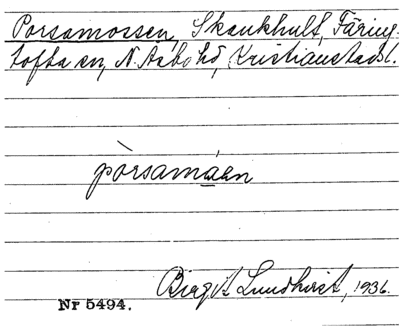 Porsamossen, Skankhult, Färing-
tofta sn, N. Åsbo hd, Kristianstads l.
pòrsamáen
Birgit Lundkvist, 1936.
Nr 5494.